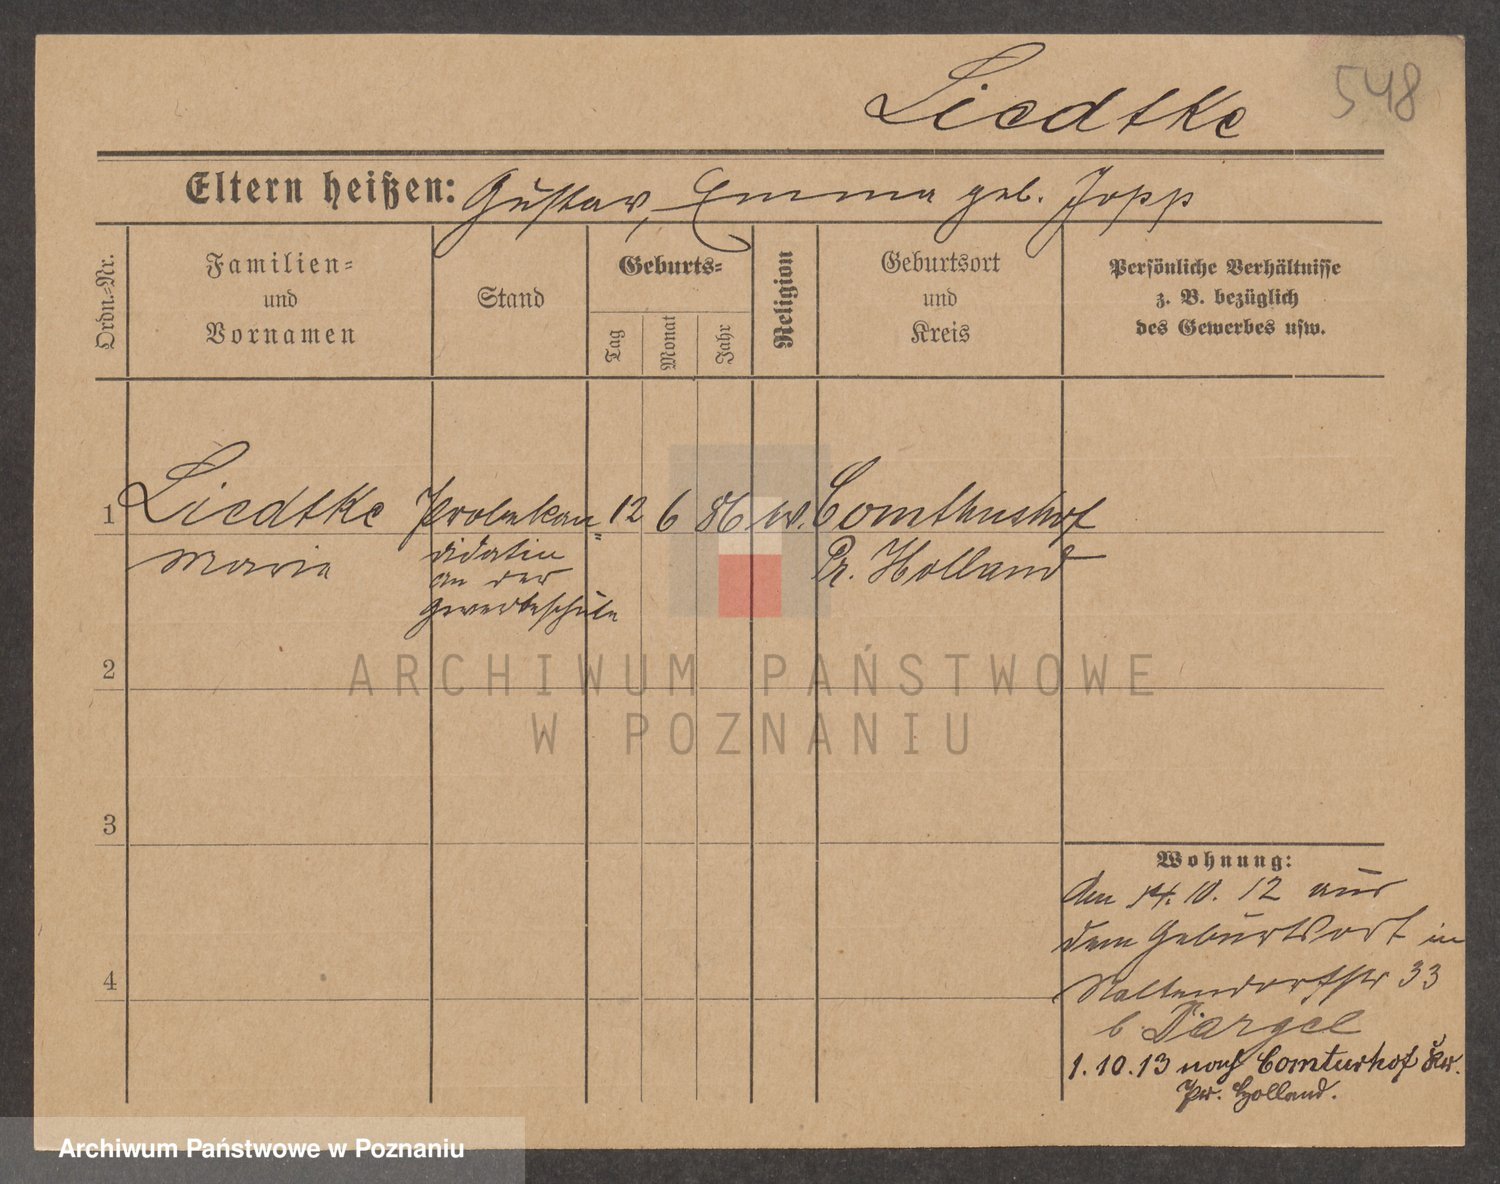 548
Liedtke
Eltern heißen: Gustav, Emma geb. Jopp
Ordn.-Nr.
Familien-
und
Vornamen
Stand
Geburts-
Tag
Monat
Jahr
Religion
Geburtsort
und
Kreis
Persönliche Verhältnisse
z. B. bezüglich
des Gewerbes usw.
1 Liedtke Probekan= 12 6 86 ev. Comthurhof
Marie didatin Pr. Holland
an der
Gewerbeschule
2
3
4
Wohnung:
Am 14. 10. 12 aus
dem Geburtsort in
33
b.
1.10.13 nach Comturhof Kr.
Pr. Holland.
ARCHIWUM PAŃSTWOWE
W POZNANIU
Archiwum Państwowe w Poznaniu